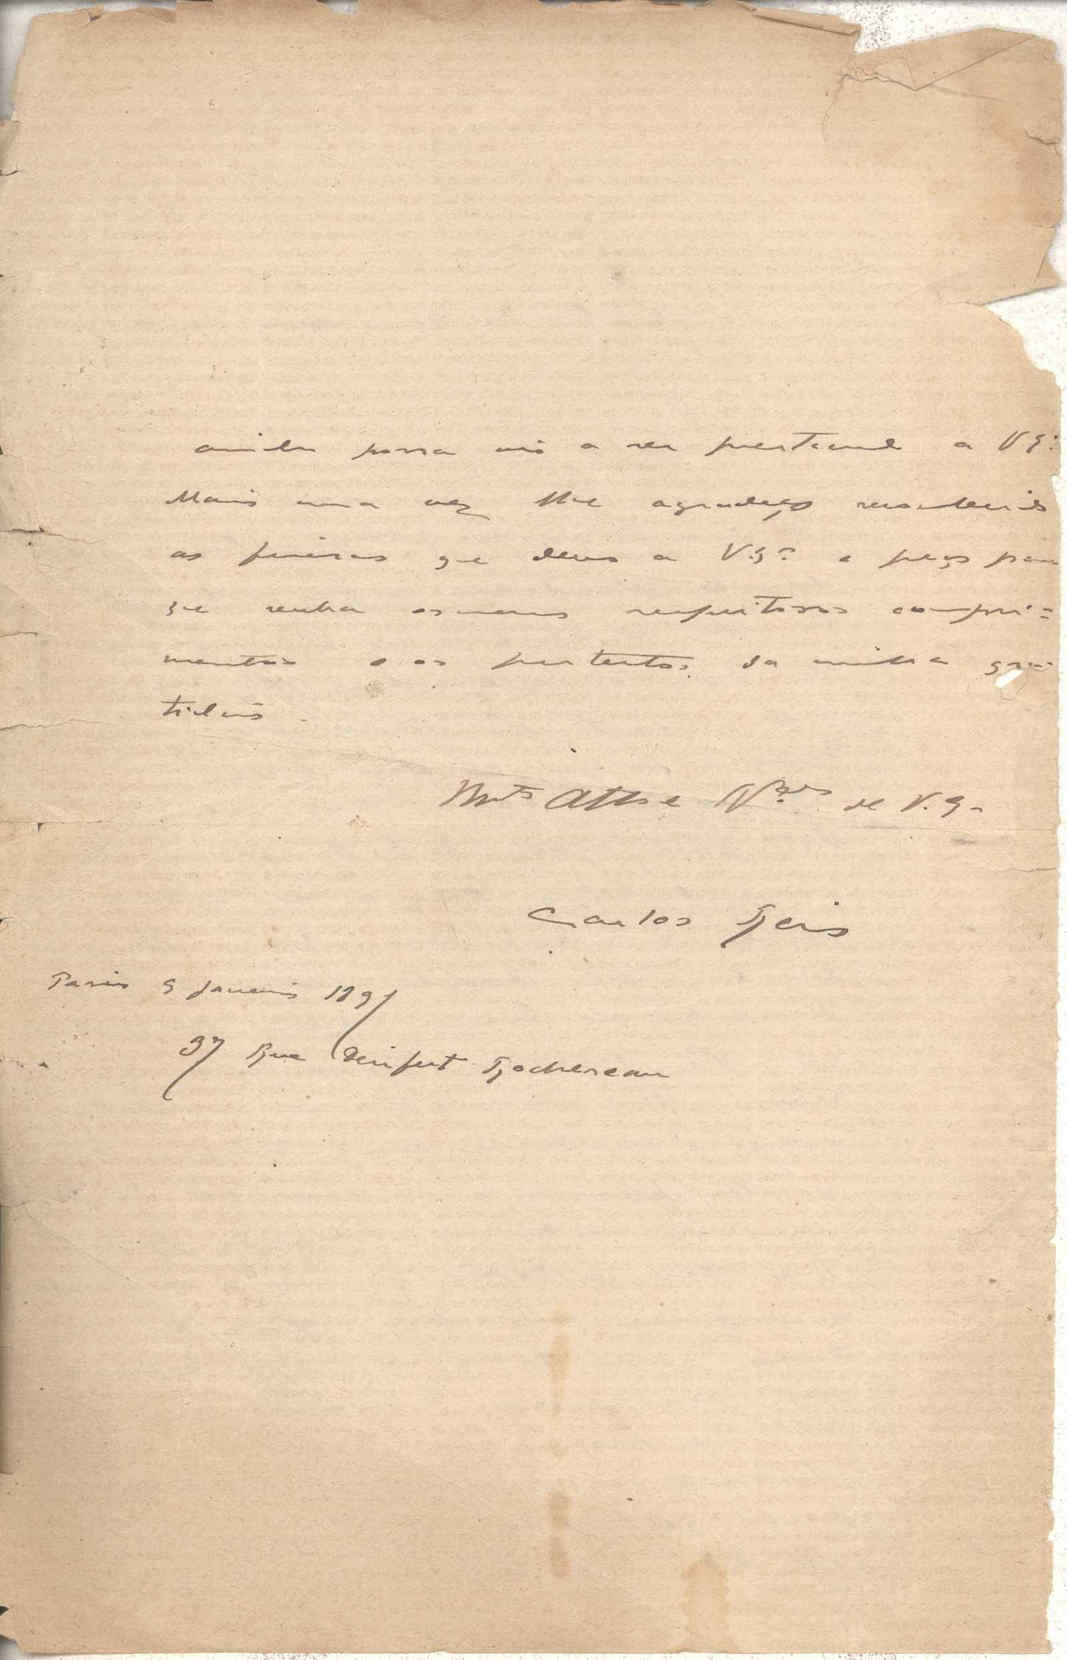 ainda possa vir a ser prestavel a V. Ex.ª
Mais uma vez lhe agradeço
as finezas que devo a V. Ex.ª e peço para
que receba os meus respeitosos compri-
mentos e os protestos da minha gra-
tidão.
Mt.º Att.º e de V. E.
Carlos Reis
Paris 9 Janeiro 1891
37 Rue Denfert Rochereau